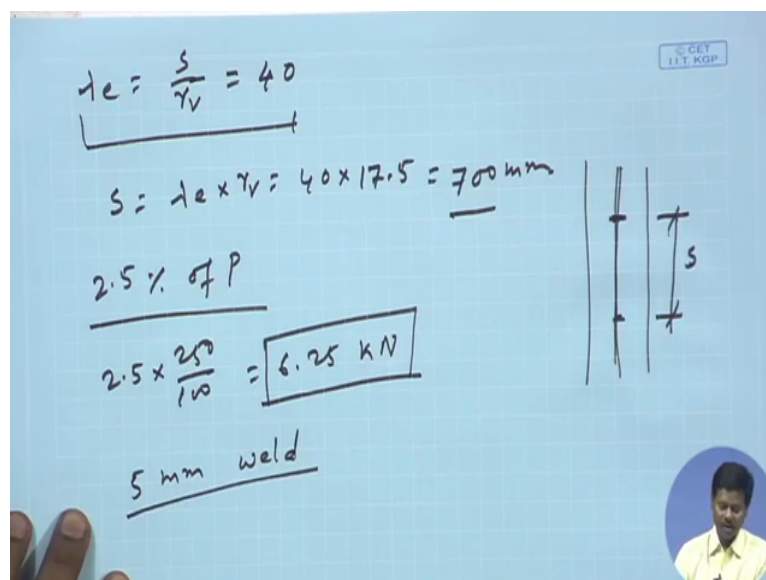 © CET
I.I.T. KGP
λe = S/rv = 40
S = λe × rv = 40 × 17.5 = 700 mm
S
2.5 % of P
2.5 × 250/100 = 6.25 KN
5 mm weld